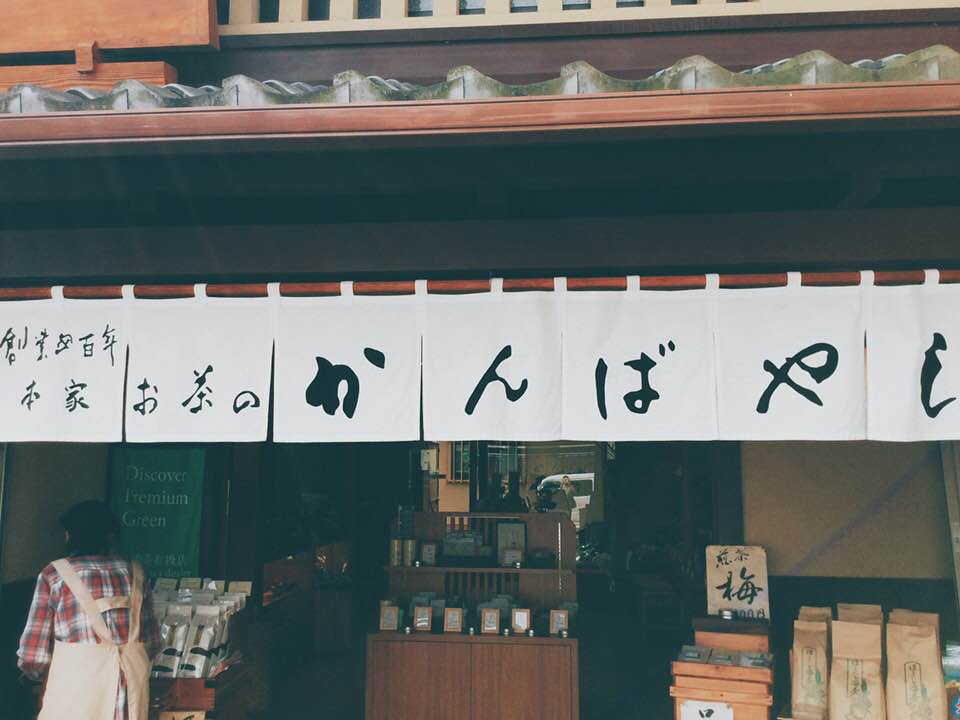 創業四百年
本家
お茶のかんばやし
Discover
Premium
Green
煎茶
梅